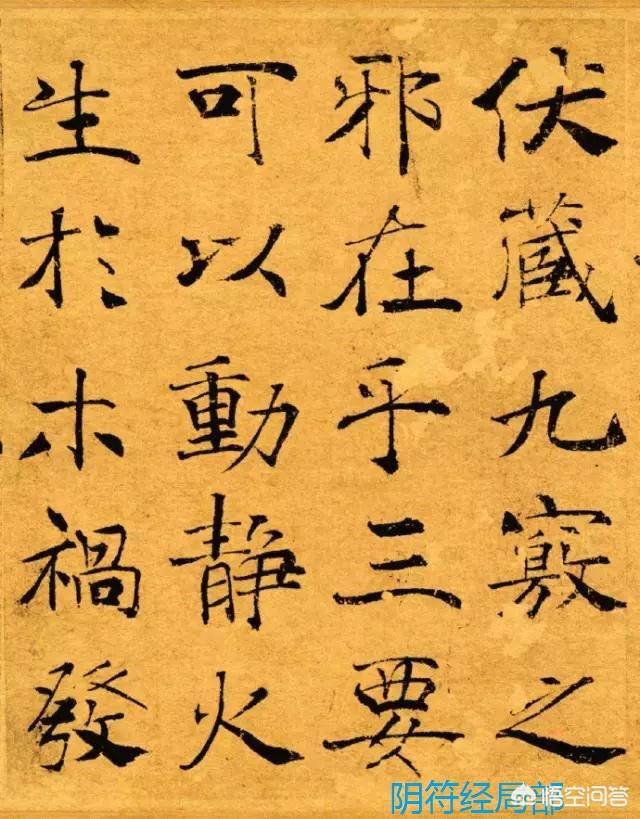 伏藏九竅之
邪在乎三要
可以動靜火
生於木禍發
阴符经局部
悟空问答